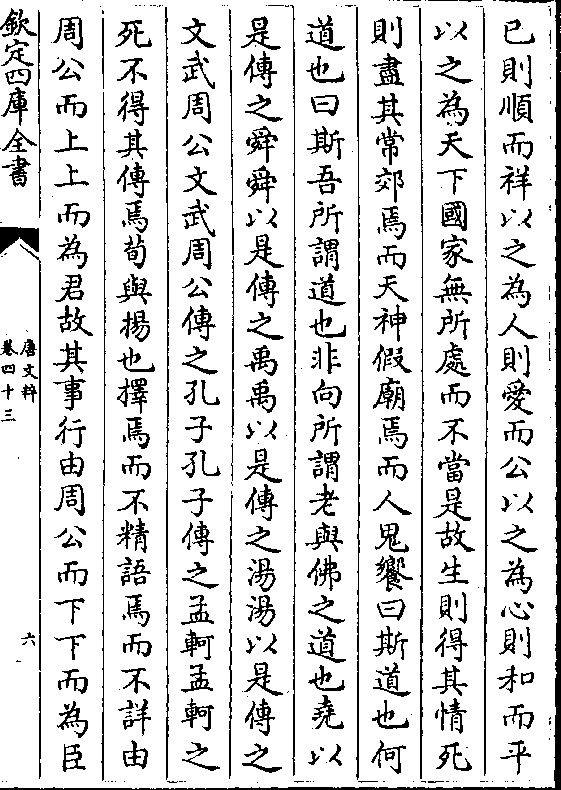 已則順而祥以之為人則愛而公以之為心則和而平
以之為天下國家無所處而不當是故生則得其情死
則盡其常郊焉而天神假廟焉而人鬼饗曰斯道也何
道也曰斯吾所謂道也非向所謂老與佛之道也堯以
是傳之舜舜以是傳之禹禹以是傳之湯湯以是傳之
文武周公文武周公傳之孔子孔子傳之孟軻孟軻之
死不得其傳焉荀與揚也擇焉而不精語焉而不詳由
周公而上上而為君故其事行由周公而下下而為臣
欽定四庫全書
唐文粹
卷四十三
六